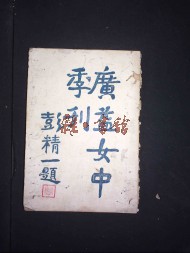 廣益女中
季刊
彭精一題